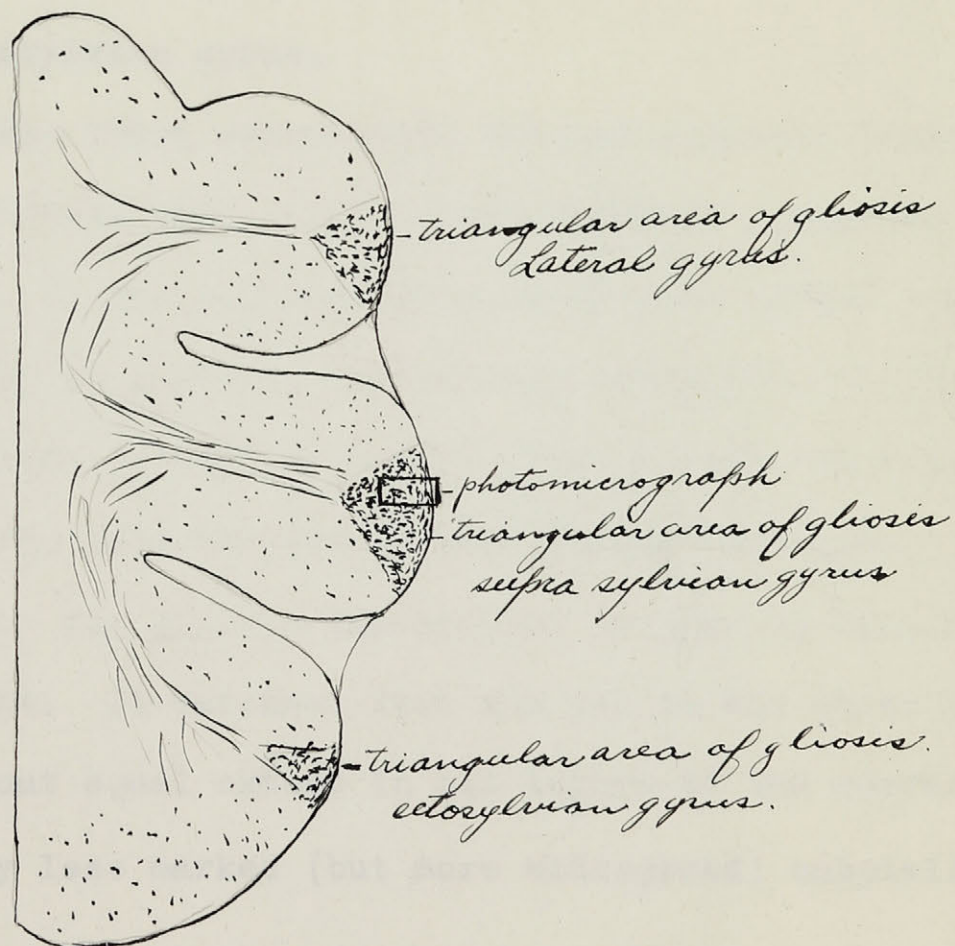 triangular area of gliosis
Lateral gyrus.
photomicrograph
triangular area of gliosis
supra sylvian gyrus
triangular area of gliosis.
ectosylvian gyrus.
(but more widespread)